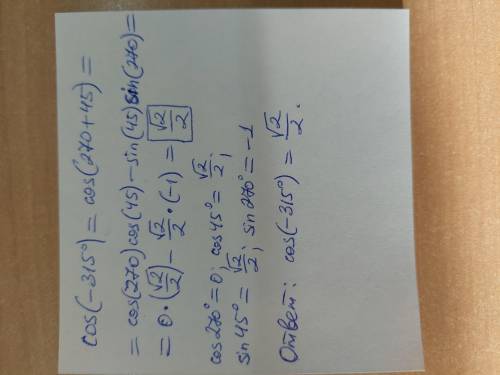 cos(-315°) = cos(270+45) =
= cos(270)cos(45) - sin(45)sin(270) =
= 0·(√2/2) - √2/2 · (-1) = √2/2
cos270° = 0; cos45° = √2/2;
sin45° = √2/2; sin270° = -1
Ответ: cos(-315°) = √2/2.